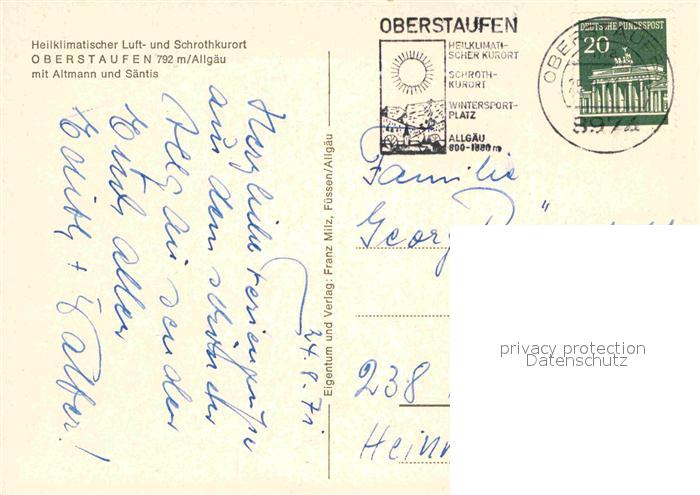 Heilklimatischer Luft- und Schrothkurort
OBERSTAUFEN 792 m/Allgäu
mit Altmann und Säntis
OBERSTAUFEN
HEILKLIMATI-
SCHER KURORT
SCHROTH-
KURORT
WINTERSPORT-
PLATZ
ALLGÄU
800-1800 m
DEUTSCHE BUNDESPOST
20
OBERSTAUFEN
Eigentum und Verlag: Franz Milz, Füssen/Allgäu
24.8.71
Herzliche Feriengrüße
aus dem schönen
Allgäu senden
Euch allen
Edith + Walter!
Familie
Georg
238
privacy protection
Datenschutz